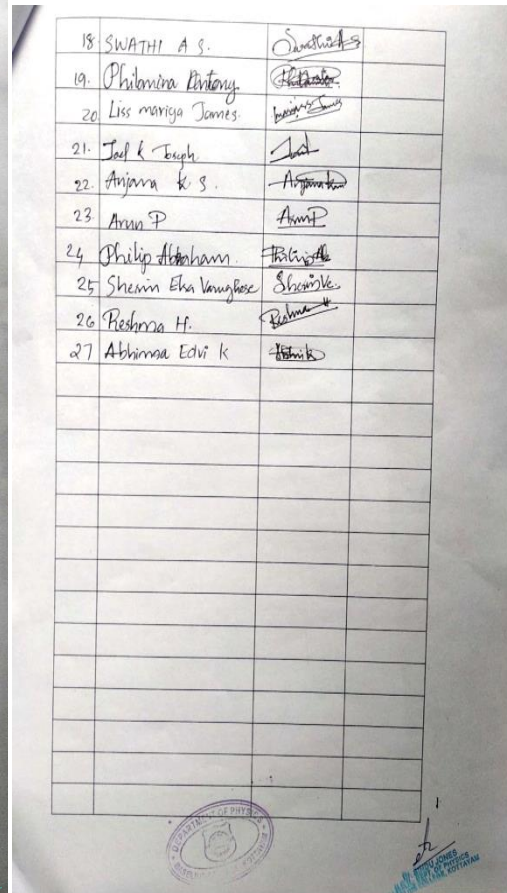 18 SWATHI A S.
19. Philomina Antony
20. Liss mariya James.
21. Joel K Joseph.
22. Anjana K S. Anjana
23. Arun P ArunP
24 Philip Abraham.
25 Sherin Elsa Varughese
26 Reshma H. Reshma H
27 Abhinna Edvi K
DEPARTMENT OF PHYSICS
JONES
OF PHYSICS
KOTTAYAM